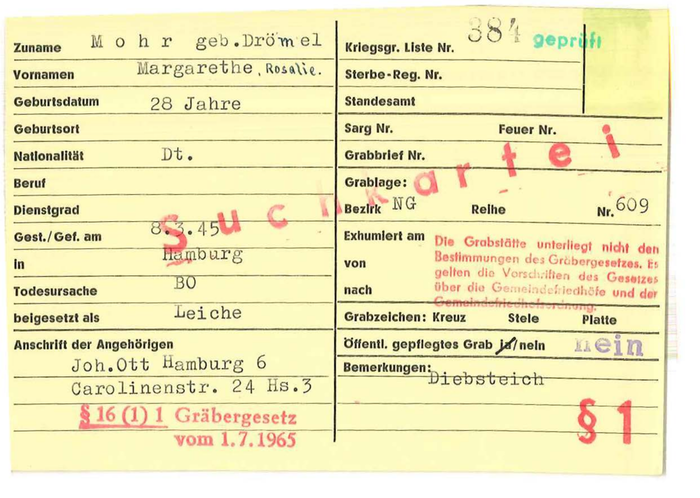 Zuname Mohr geb.Drömel
Vornamen Margarethe, Rosalie.
Geburtsdatum 28 Jahre
Geburtsort
Nationalität Dt.
Beruf
Dienstgrad
Gest./Gef. am 8.3.45
in Hamburg
Todesursache BO
beigesetzt als Leiche
Anschrift der Angehörigen
Joh.Ott Hamburg 6
Carolinenstr. 24 Hs.3
§ 16 (1) 1 Gräbergesetz
vom 1.7.1965
Suchkartei
Kriegsgr. Liste Nr. 384 geprüft
Sterbe-Reg. Nr.
Standesamt
Sarg Nr. Feuer Nr.
Grabbrief Nr.
Grablage:
Bezirk NG Reihe Nr. 609
Exhumiert am
von
nach
Die Grabstätte unterliegt nicht den
Bestimmungen des Gräbergesetzes. Es
gelten die Vorschriften des Gesetzes
über die Gemeindefriedhöfe und der
Gemeindefriedhofsordnung.
Grabzeichen: Kreuz Stele Platte
Öffentl. gepflegtes Grab ja/nein nein
Bemerkungen: Diebsteich
§ 1